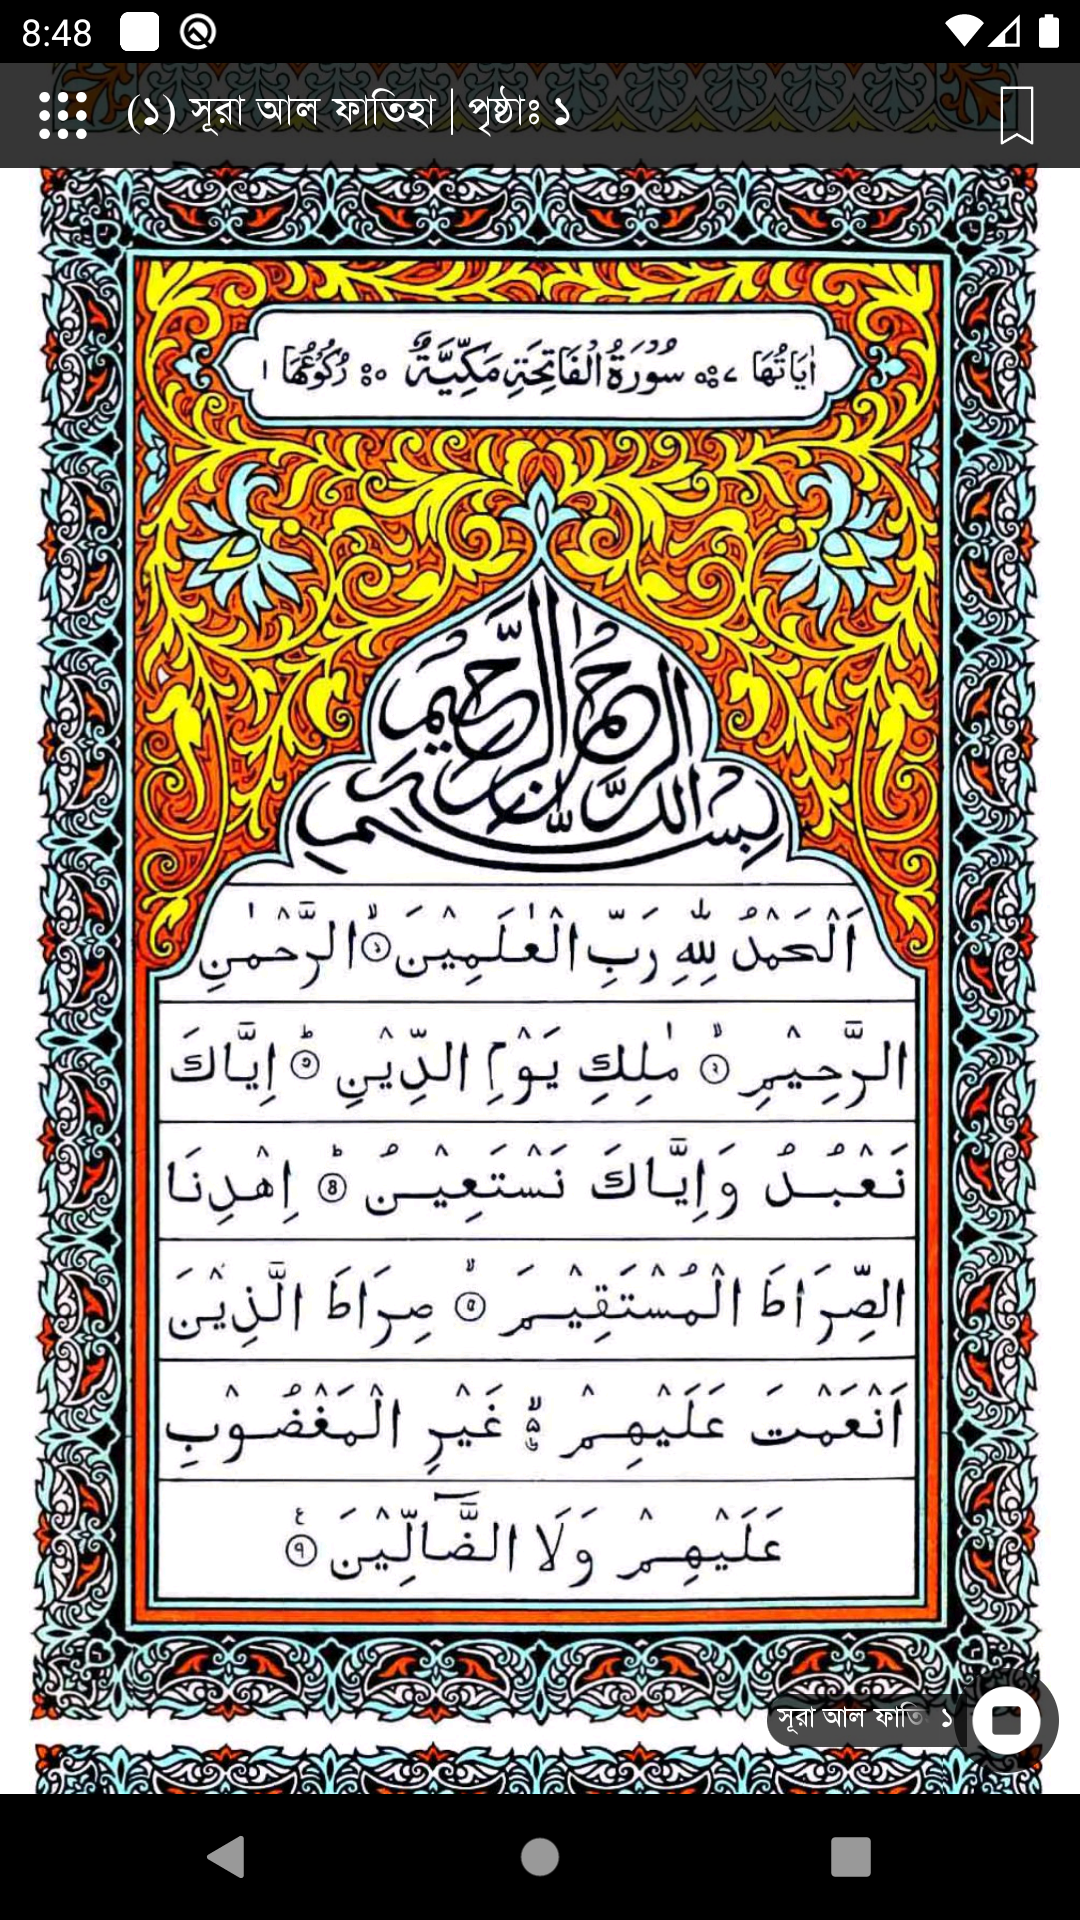 8:48
(১) সূরা আল ফাতিহা | পৃষ্ঠাঃ ১
اٰيَاتُهَا ٧ سُوْرَةُ الْفَاتِحَةِ مَكِّيَّةٌ رُكُوْعُهَا ١
بِسْمِ اللّٰهِ الرَّحْمٰنِ الرَّحِيْمِ
اَلْحَمْدُ لِلّٰهِ رَبِّ الْعٰلَمِيْنَ ۙ﴿١﴾ الرَّحْمٰنِ
الرَّحِيْمِ ۙ﴿٢﴾ مٰلِكِ يَوْمِ الدِّيْنِ ؕ﴿٣﴾ اِيَّاكَ
نَعْبُدُ وَاِيَّاكَ نَسْتَعِيْنُ ؕ﴿٤﴾ اِهْدِنَا
الصِّرَاطَ الْمُسْتَقِيْمَ ۙ﴿٥﴾ صِرَاطَ الَّذِيْنَ
اَنْعَمْتَ عَلَيْهِمْ ۙ۬ۦ غَيْرِ الْمَغْضُوْبِ
عَلَيْهِمْ وَلَا الضَّآلِّيْنَ
সূরা আল ফাতি ১